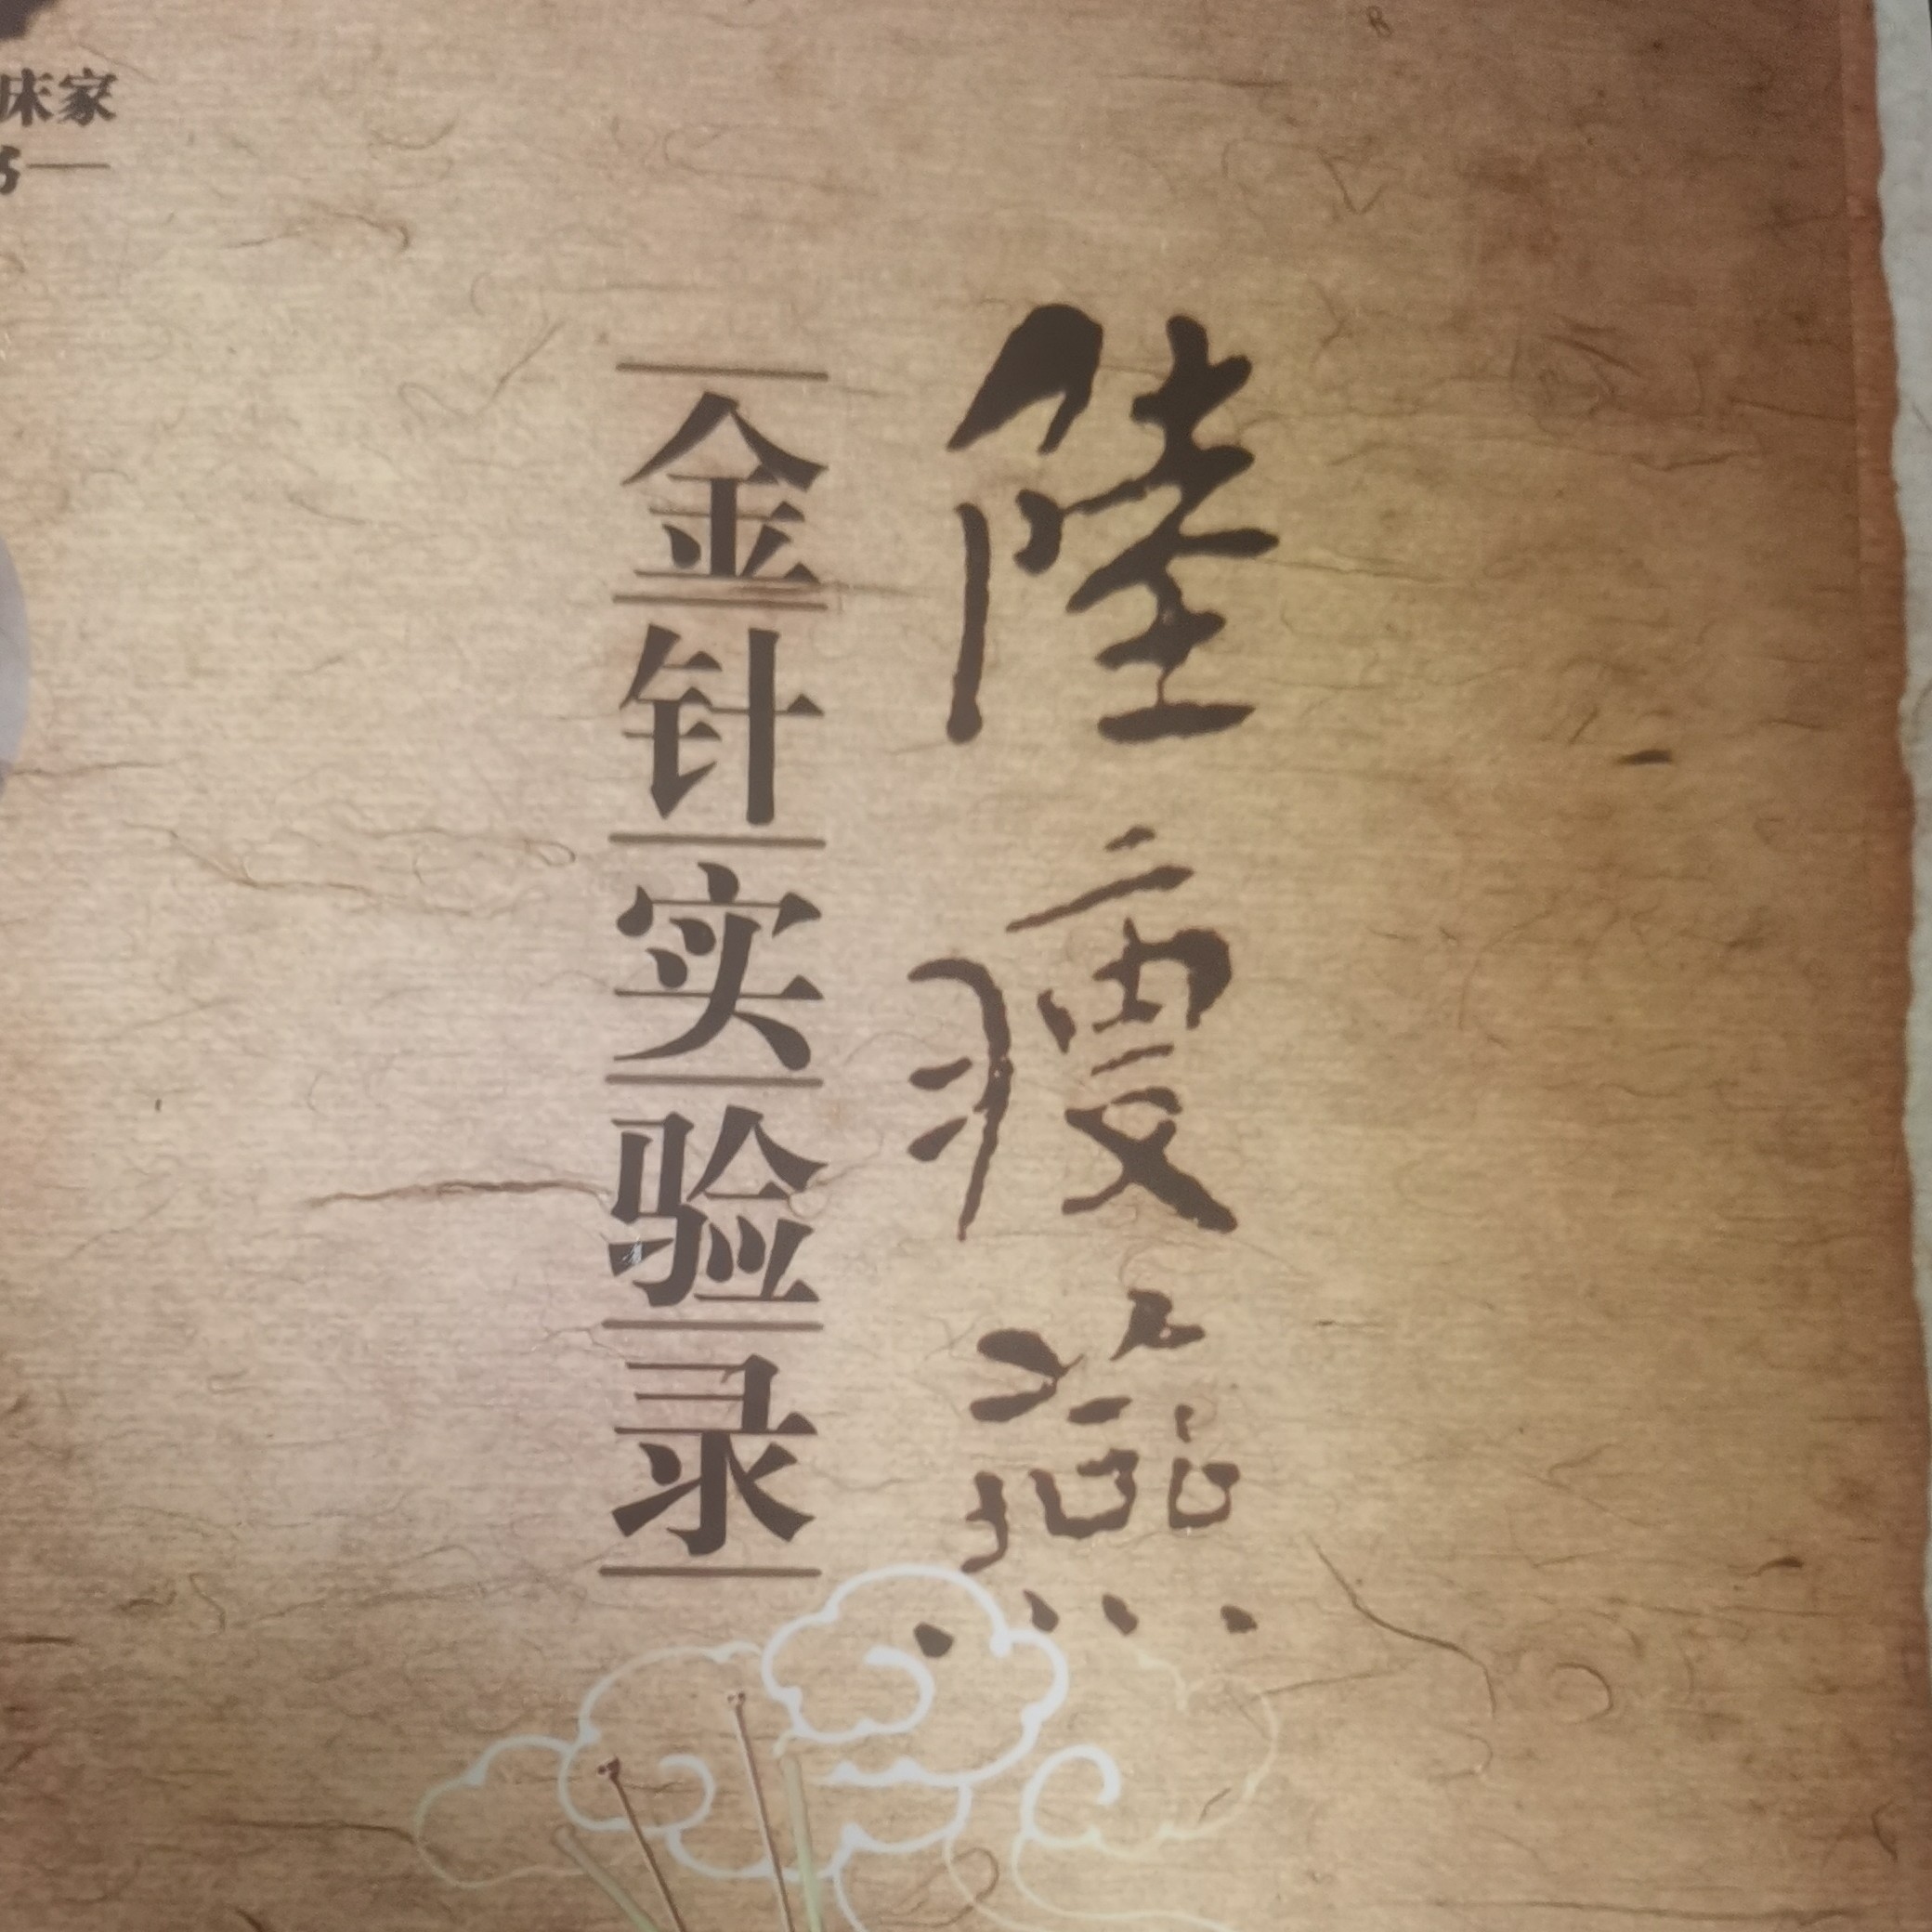 陸瘦燕
金针实验录
床家